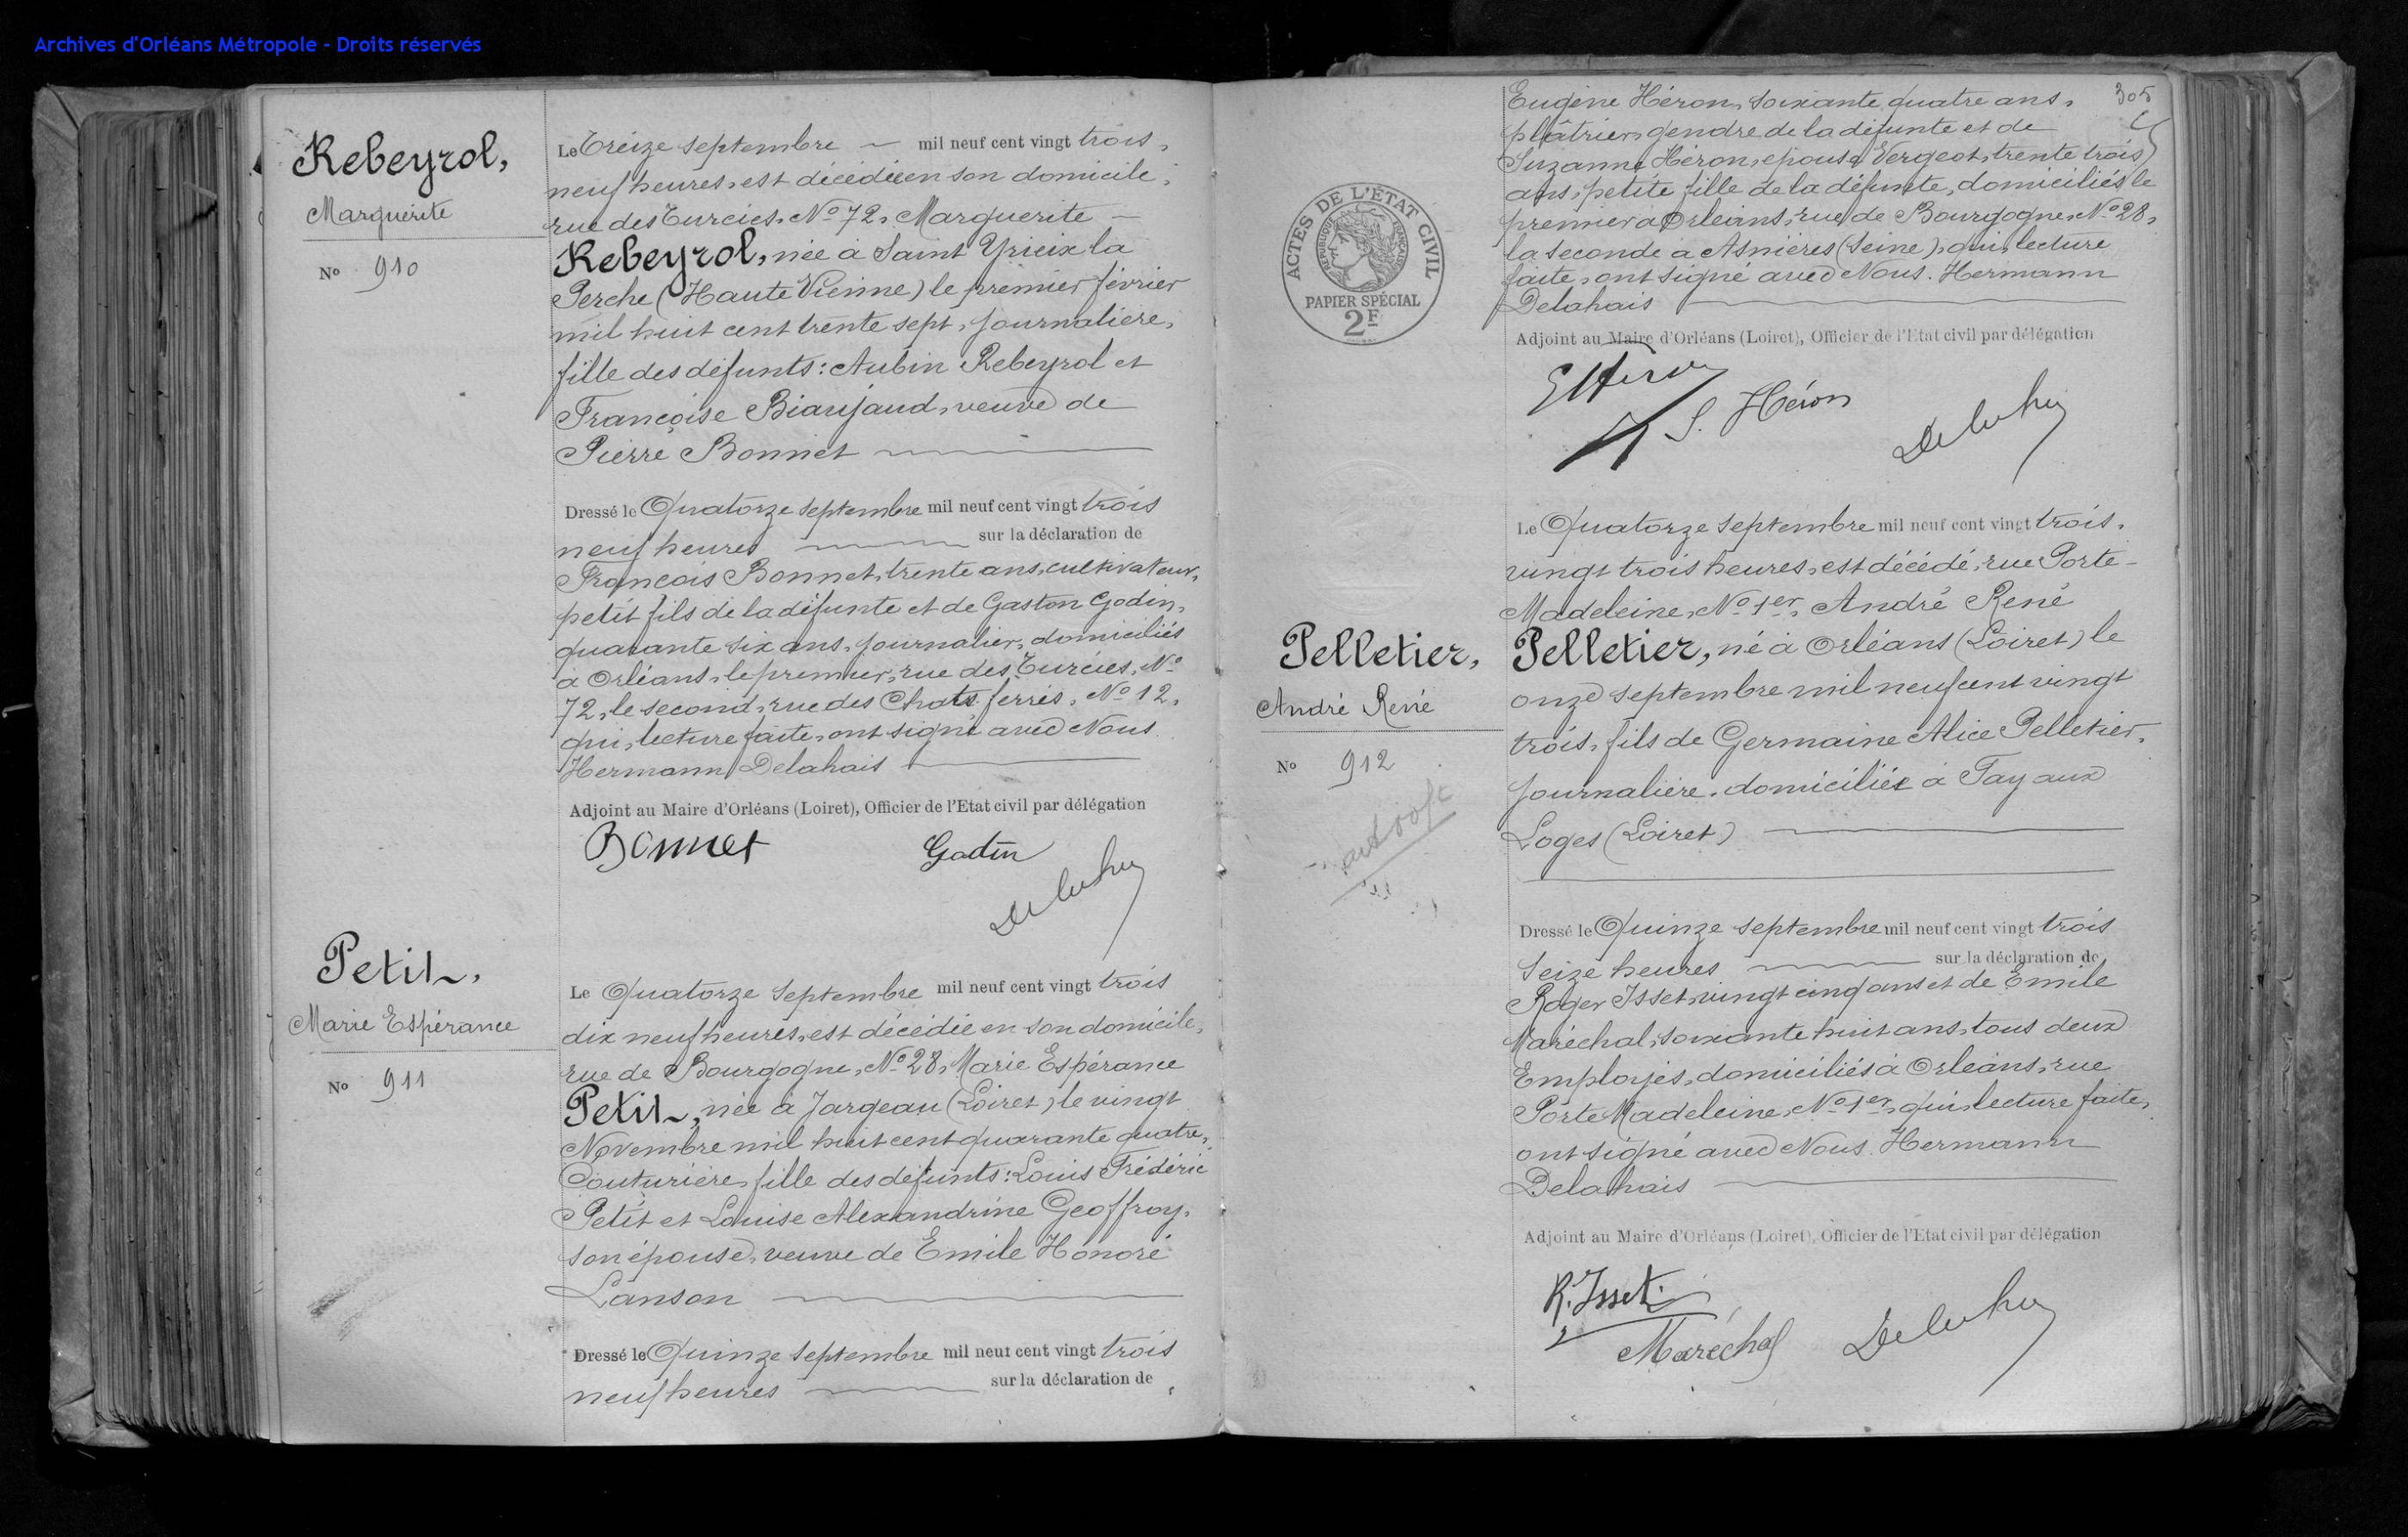 Archives d'Orléans Métropole - Droits réservés
Rebeyrol,
Marguerite
No 910
Le Treize septembre — mil neuf cent vingt trois,
neuf heures, est décédée en son domicile,
rue des Turcies, No 72, Marguerite —
Rebeyrol, née à Saint Yrieix la
Perche (Haute Vienne) le premier février
mil huit cent trente sept, journalière,
fille des défunts: Aubin Rebeyrol et
Françoise Biaujaud, veuve de
Pierre Bonnet
Dressé le Quatorze septembre mil neuf cent vingt trois
neuf heures — sur la déclaration de
François Bonnet, trente ans, cultivateur,
petit fils de la défunte et de Gaston Godin,
quarante six ans, journalier, domiciliés
à Orléans, le premier, rue des Turcies, No
72, le second, rue des Chats ferrés, No 12,
qui, lecture faite, ont signé avec Nous
Hermann Delahais
Adjoint au Maire d'Orléans (Loiret), Officier de l'Etat civil par délégation
Bonnet Godin
Petit,
Marie Espérance
No 911
Le Quatorze septembre mil neuf cent vingt trois
dix neuf heures, est décédée en son domicile,
rue de Bourgogne, No 28, Marie Espérance
Petit, née à Jargeau (Loiret) le vingt
Novembre mil huit cent quarante quatre,
Couturière, fille des défunts: Louis Frédéric
Petit et Louise Alexandrine Geoffroy,
son épouse, veuve de Emile Honoré
Lanson
Dressé le Quinze septembre mil neuf cent vingt trois
neuf heures — sur la déclaration de
305
Eugène Héron, soixante quatre ans,
plâtrier, gendre de la défunte et de
Suzanne Héron, épouse Vergeot, trente trois
ans, petite fille de la défunte, domiciliés le
premier à Orléans, rue de Bourgogne, No 28,
la seconde à Asnières (Seine), qui, lecture
faite, ont signé avec Nous. Hermann
Delahais
Adjoint au Maire d'Orléans (Loiret), Officier de l'Etat civil par délégation
S. Héron
ACTES DE L'ÉTAT CIVIL
RÉPUBLIQUE FRANÇAISE
PAPIER SPÉCIAL
2F
Pelletier,
André René
No 912
Le Quatorze septembre mil neuf cent vingt trois,
vingt trois heures, est décédé, rue Porte-
Madeleine, No 1er, André René
Pelletier, né à Orléans (Loiret) le
onze septembre mil neuf cent vingt
trois, fils de Germaine Alice Pelletier,
journalière, domiciliée à Fay aux
Loges (Loiret)
Dressé le Quinze septembre mil neuf cent vingt trois
seize heures — sur la déclaration de
Roger Isset, vingt cinq ans et de Emile
Maréchal, soixante huit ans, tous deux
Employés, domiciliés à Orléans, rue
Porte Madeleine, No 1er, qui, lecture faite,
ont signé avec Nous. Hermann
Delahais
Adjoint au Maire d'Orléans (Loiret), Officier de l'Etat civil par délégation
R. Isset.
Maréchal